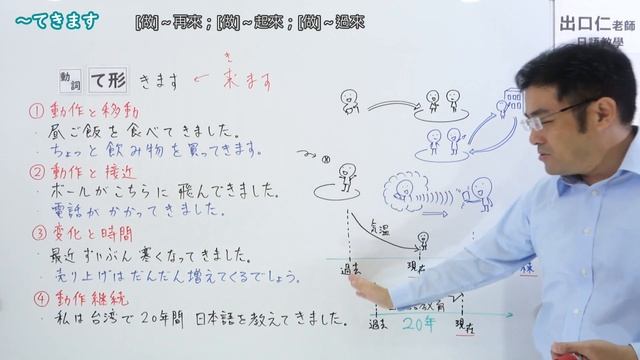 ～てきます
[做]～再來；[做]～起來；[做]～過來
出口仁老師
日語教學
き
動詞 て形 きます ← 来ます
① 動作と移動
・昼ご飯を食べてきました。
・ちょっと飲み物を買ってきます。
② 動作と接近
・ボールがこちらに飛んできました。
・電話がかかってきました。
③ 変化と時間
・最近ずいぶん寒くなってきました。
・売り上げはだんだん増えてくるでしょう。
④ 動作継続
・私は台湾で20年間日本語を教えてきました。
気温
過去 現在
教育
過去 20年 現在